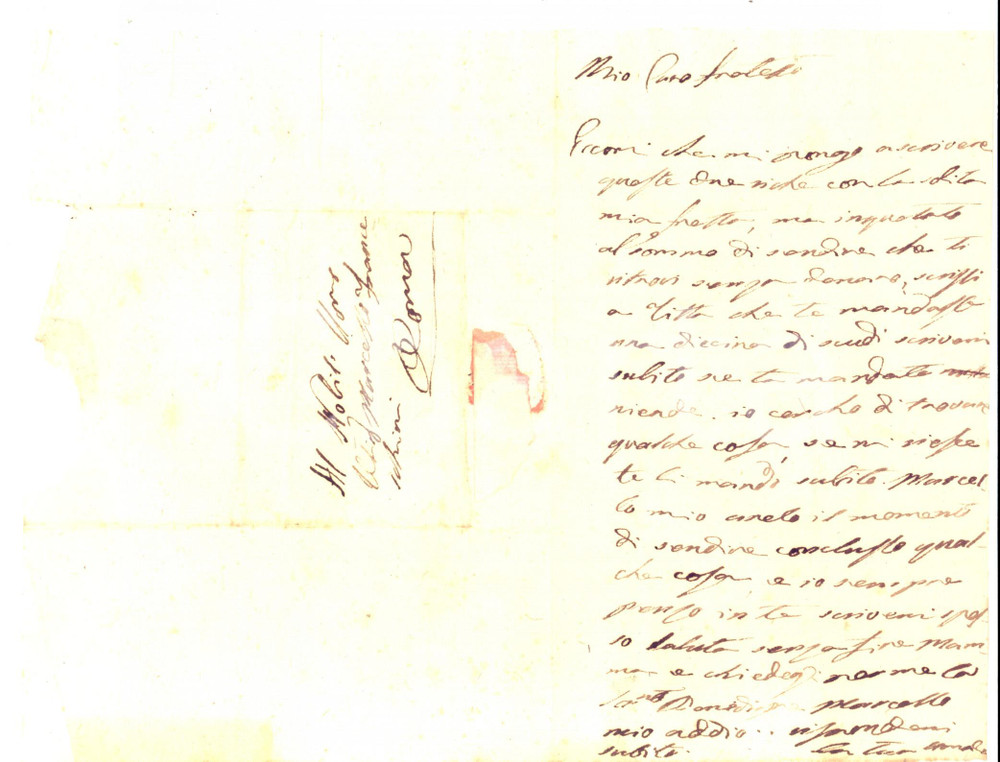 Al Nobil Uomo
Marcello France
schini
Roma
Mio Caro fratello
Eccomi che mi pongo a scrivere
queste due righe con la solita
mia fretta, ma inquietata
al sommo di sendire che ti
ritrovi senza denaro, scrissi
a Titta che te mandasse
una diecina di scudi scrivemi
subito se ta mandato
niende. io cercho di trovare
qualche cosa, se mi riesce
te li mando subito. Marcel
lo mio anelo il momento
di sendire concluso qual
che cosa, e io sempre
penso in te scrivemi spes
so saluta senza fine Mam
ma e chiedegli per me la
Santa Benedizione Marcello
mio addio.. rispondemi
subito. La tua